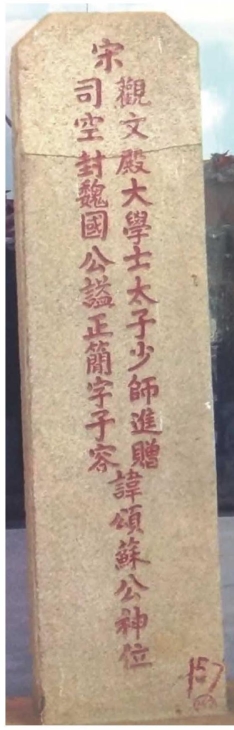 宋
觀文殿大學士太子少師進贈
司空封魏國公謚正簡字子容
諱頌蘇公神位
157